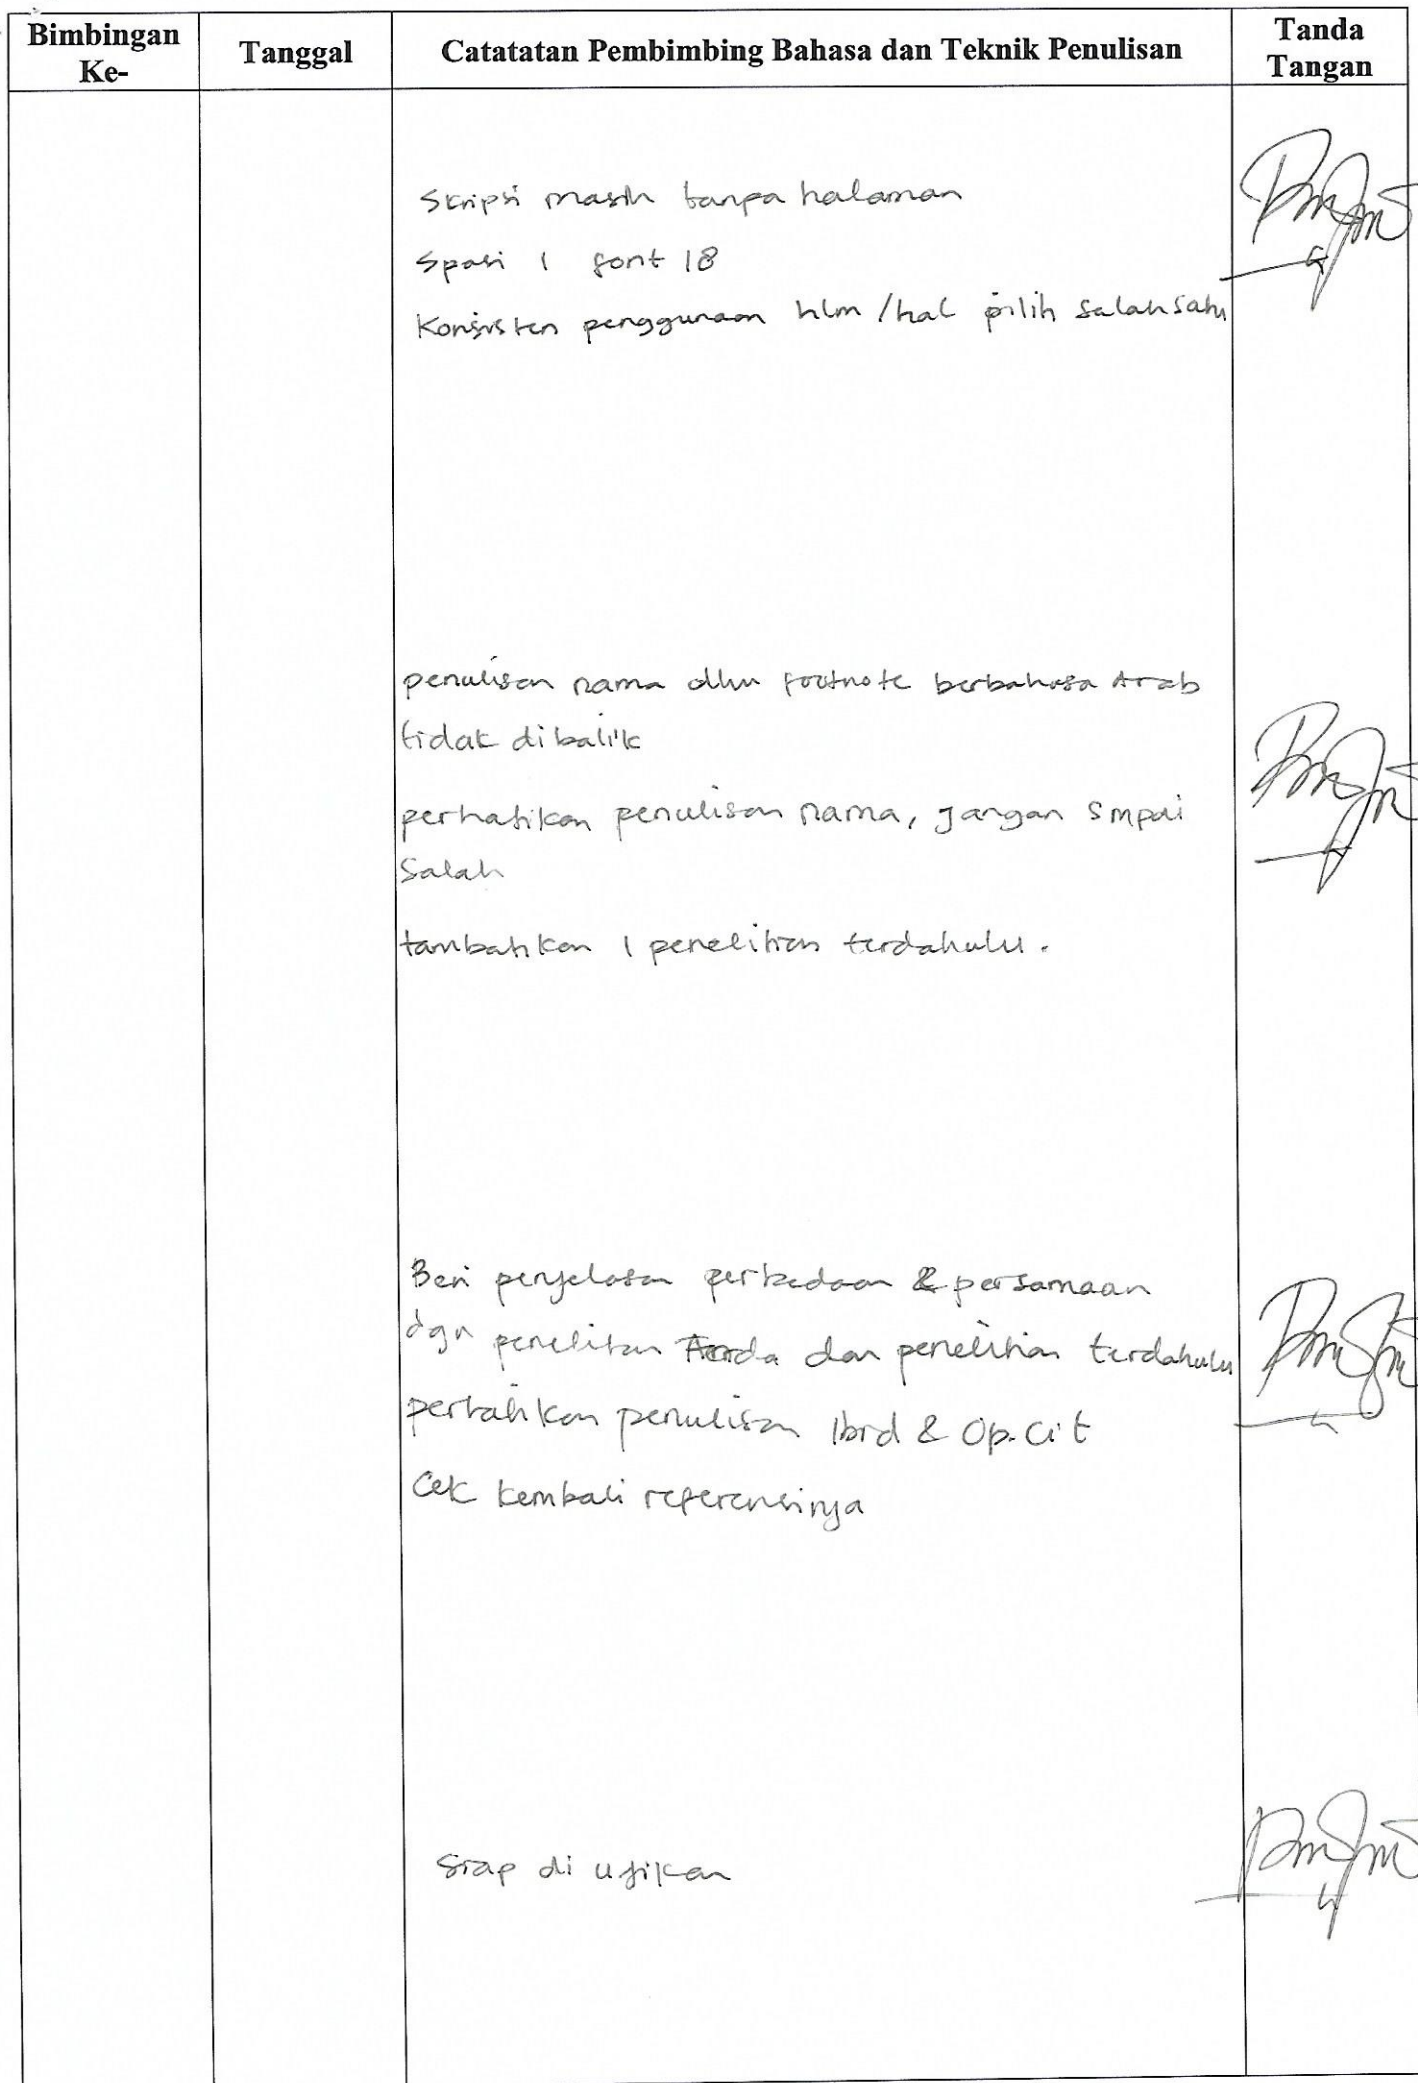 Bimbingan Ke-
Tanggal
Catatatan Pembimbing Bahasa dan Teknik Penulisan
Tanda Tangan
Skripsi masih tanpa halaman
Spasi 1 font 18
Konsisten penggunaan hlm/hal pilih salah satu
penulisan nama dlm footnote berbahasa Arab
tidak dibalik
perhatikan penulisan nama, jangan smpai
salah
tambahkan 1 penelitian terdahulu.
Beri penjelasan perbedaan & persamaan
dgn penelitian Anda dan penelitian terdahulu
perhatikan penulisan Ibid & Op.Cit
Cek kembali referensinya
Siap di ujikan